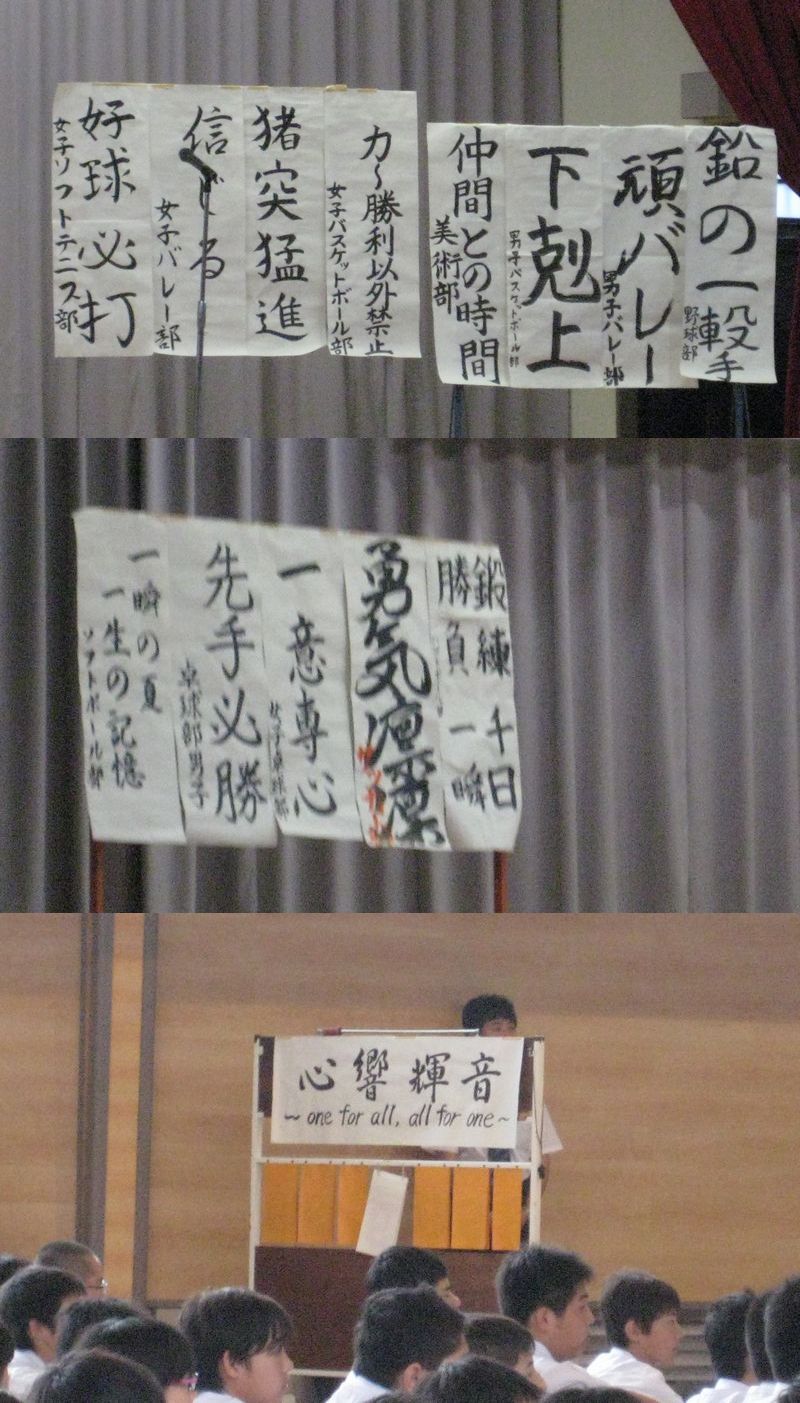 鉛の一撃
野球部
頑バレー
男子バレー部
下剋上
男子バスケットボール部
仲間との時間
美術部
力〜勝利以外禁止
女子バスケットボール部
猪突猛進
信じる
女子バレー部
好球必打
女子ソフトテニス部
鍛練千日
勝負一瞬
勇気凛凛
サッカー
一意専心
女子卓球部
先手必勝
卓球部男子
一瞬の夏
一生の記憶
ソフトボール部
心響輝音
～one for all, all for one～